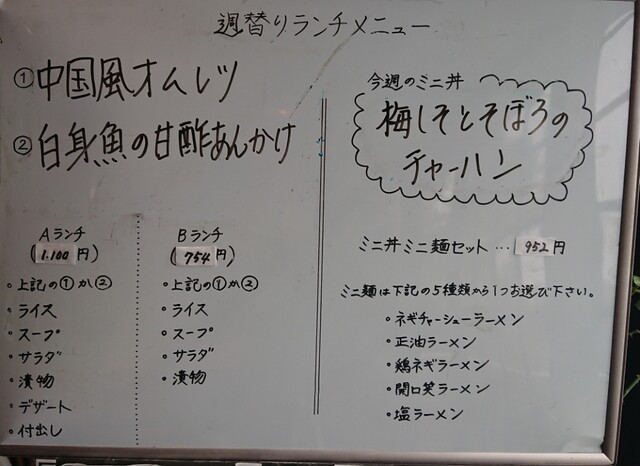 週替りランチメニュー
①中国風オムレツ
②白身魚の甘酢あんかけ
Aランチ
(1.100円)
・上記の①か②
・ライス
・スープ
・サラダ
・漬物
・デザート
・付出し
Bランチ
(754円)
・上記の①か②
・ライス
・スープ
・サラダ
・漬物
今週のミニ丼
梅しそとそぼろの
チャーハン
ミニ丼ミニ麺セット…952円
ミニ麺は下記の5種類から1つお選び下さい。
・ネギチャーシューラーメン
・正油ラーメン
・鶏ネギラーメン
・開口笑ラーメン
・塩ラーメン